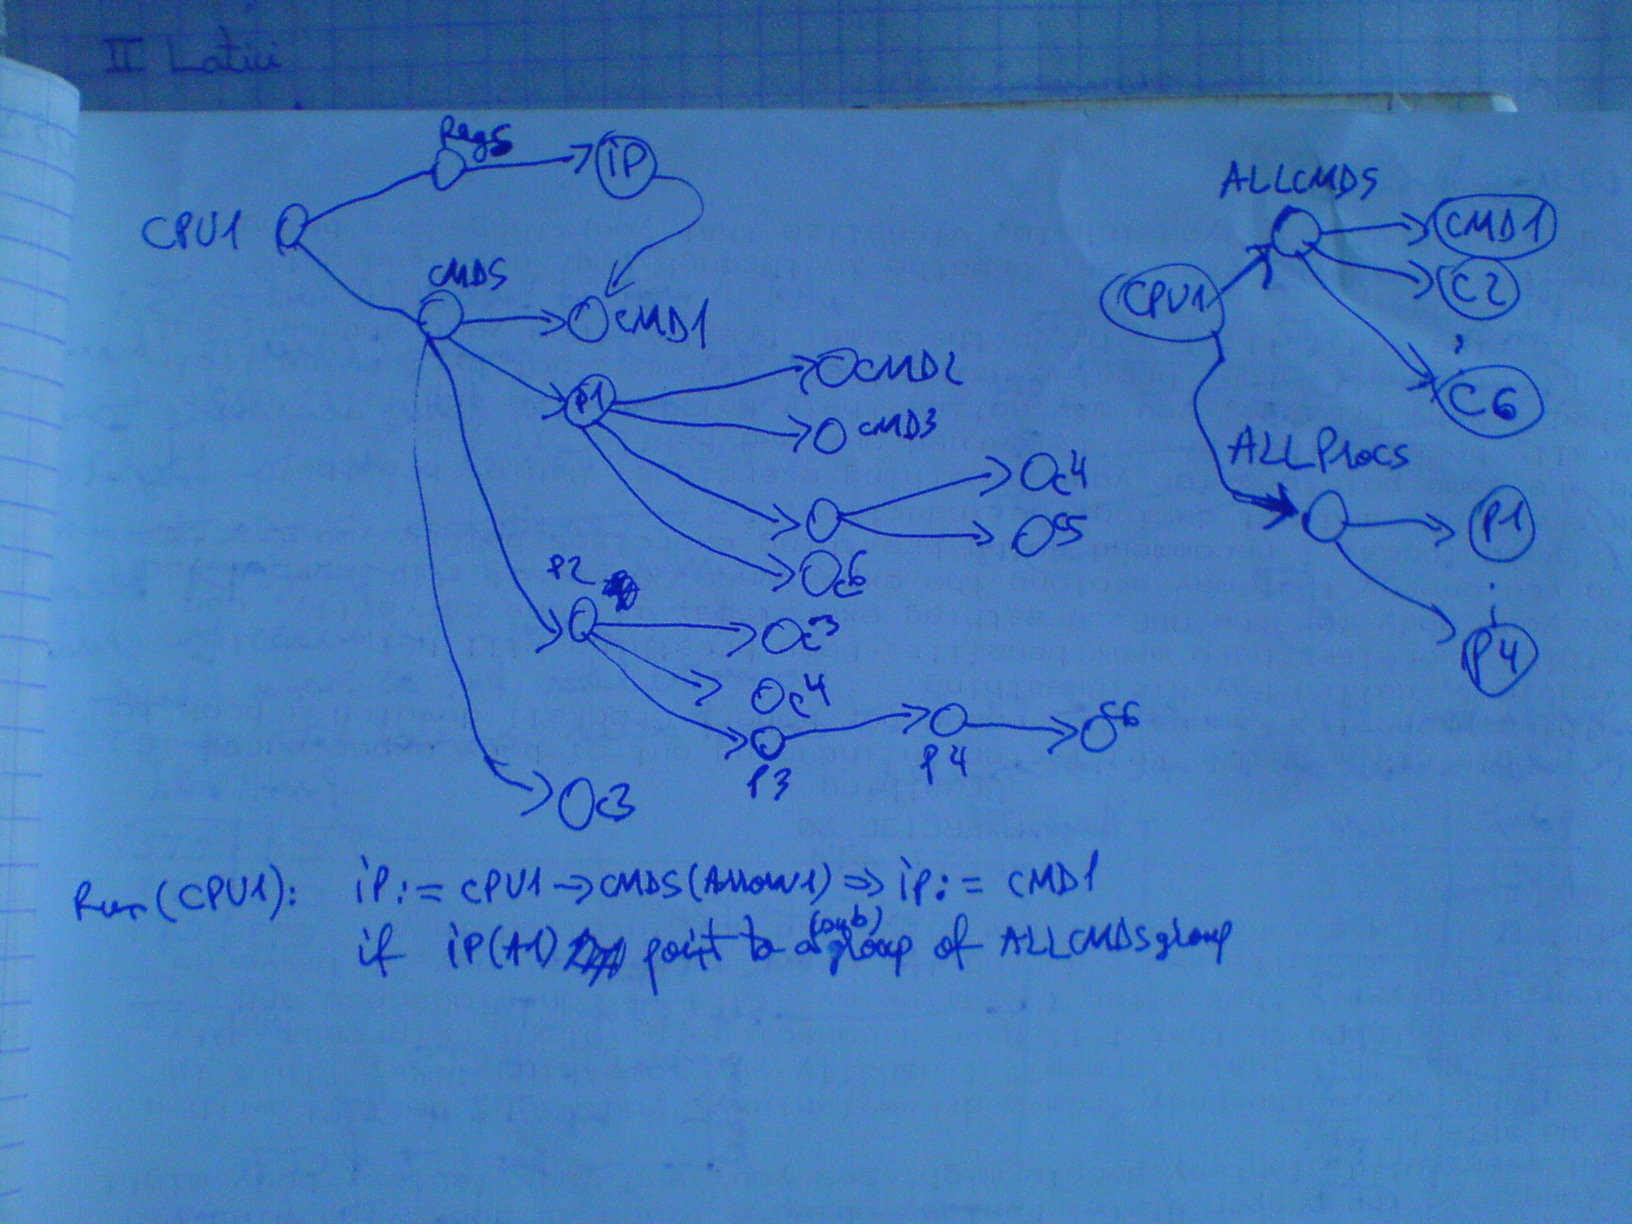 II Latici
Regs
iP
CPU1
CMDS
CMD1
P1
CMD2
CMD3
c4
c5
c6
P2
c3
c4
P3
P4
c6
c3
ALLCMDS
CPU1
CMD1
C2
C6
ALLProcs
P1
P4
Run(CPU1): iP:= CPU1→CMDS(Arrow1) ⇒ iP:= CMD1
if iP(A1) point to a (sub) group of ALLCMDS group